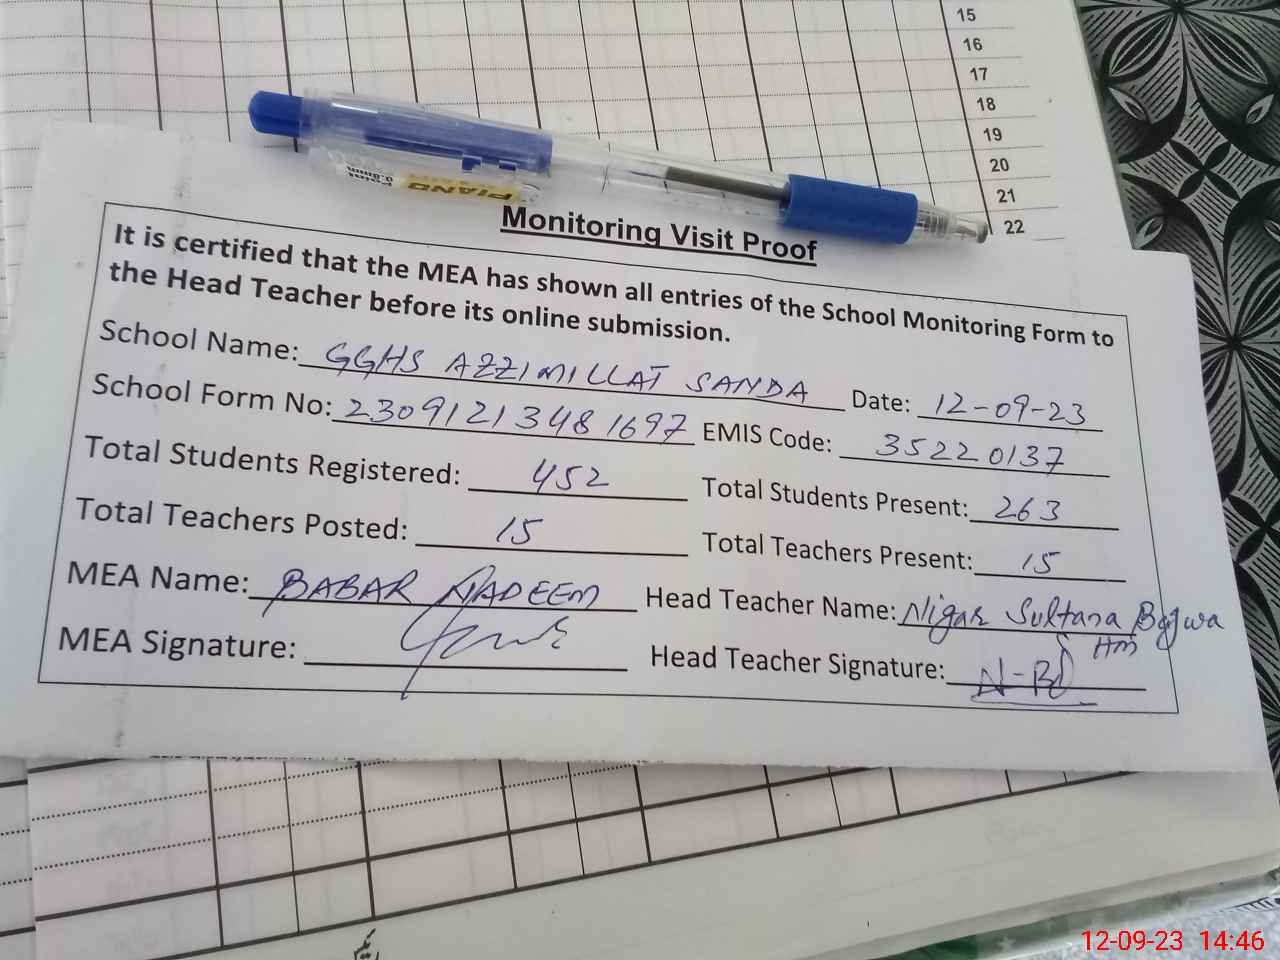 15
16
17
18
19
20
21
22
PIANO
Point
0.8mm
Monitoring Visit Proof
It is certified that the MEA has shown all entries of the School Monitoring Form to
the Head Teacher before its online submission.
School Name: GGHS AZZIMILLAT SANDA Date: 12-09-23
School Form No: 2309121348 1697 EMIS Code: 35220137
Total Students Registered: 452 Total Students Present: 263
Total Teachers Posted: 15 Total Teachers Present: 15
MEA Name: BABAR NADEEM Head Teacher Name: Nigar Sultana
HM
MEA Signature: Head Teacher Signature:
12-09-23 14:46